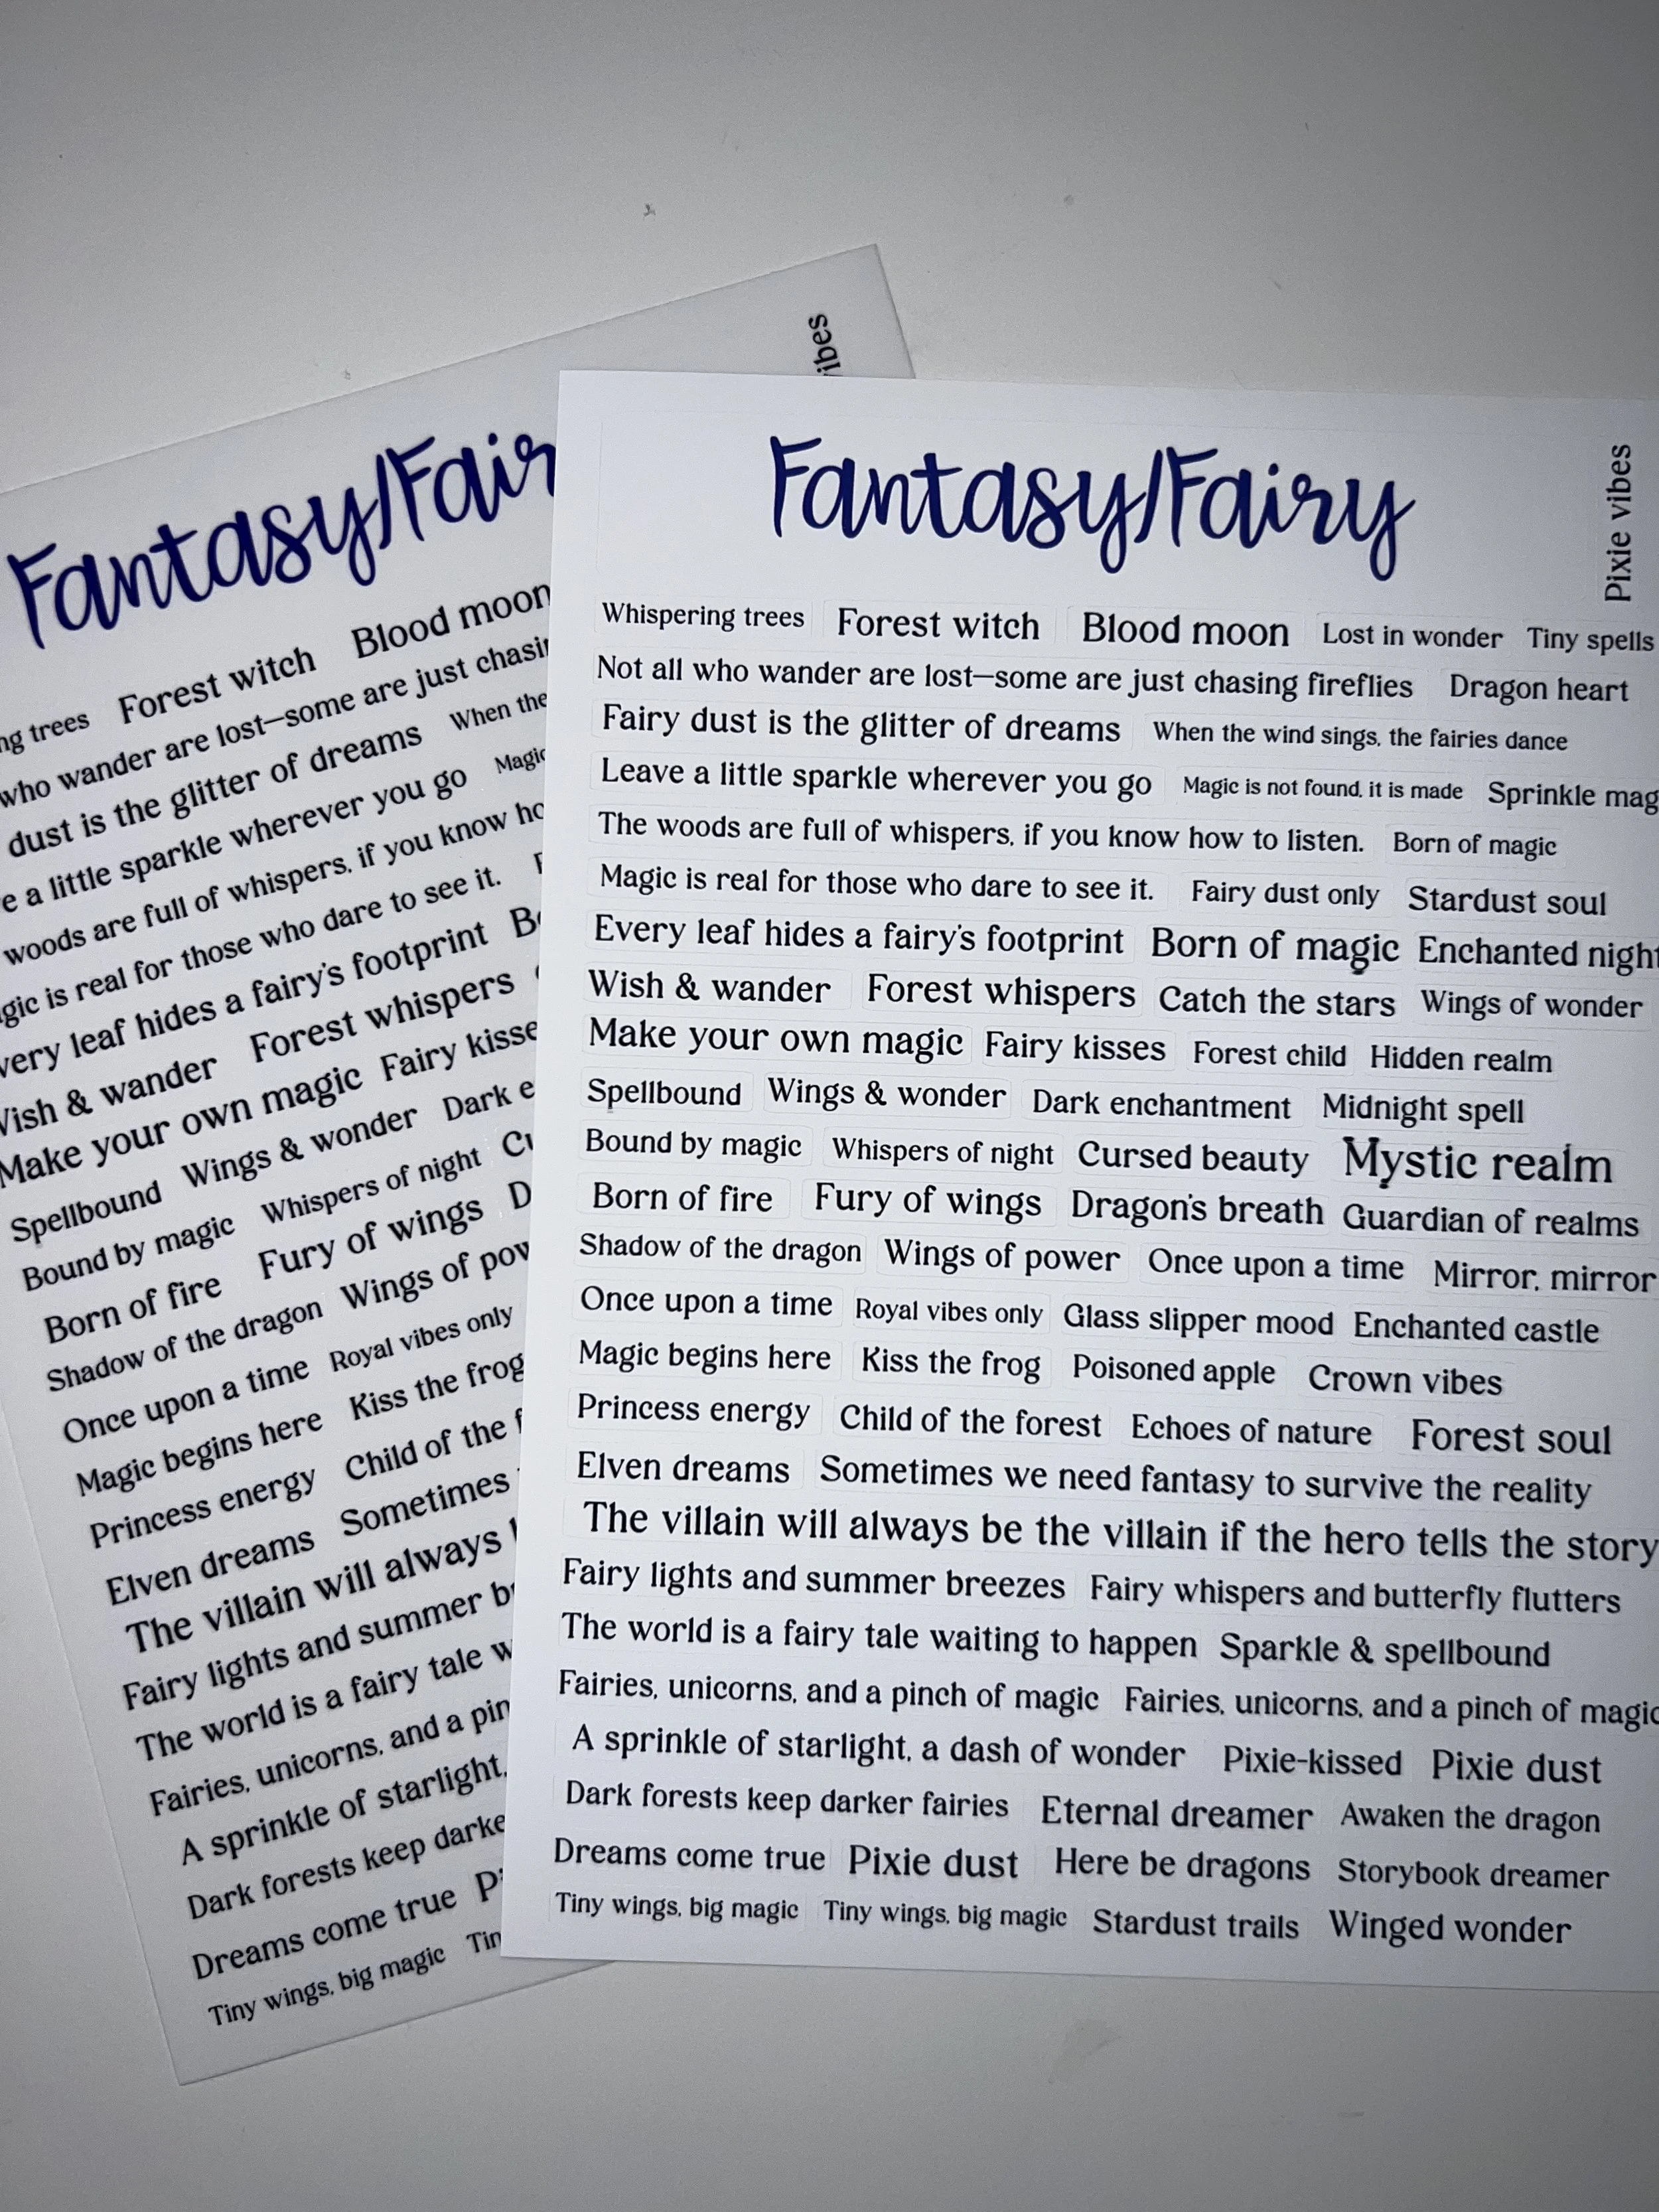 ibes
Fantasy/Fair
ng trees Forest witch Blood moon
who wander are lost—some are just chasin
dust is the glitter of dreams When the
e a little sparkle wherever you go Magic
woods are full of whispers, if you know ho
gic is real for those who dare to see it.
very leaf hides a fairy's footprint
Wish & wander Forest whispers
Make your own magic Fairy kisse
Spellbound Wings & wonder Dark e
Bound by magic Whispers of night Cu
Born of fire Fury of wings D
Shadow of the dragon Wings of pow
Once upon a time Royal vibes only
Magic begins here Kiss the frog
Princess energy Child of the f
Elven dreams Sometimes
The villain will always
Fairy lights and summer b
The world is a fairy tale w
Fairies, unicorns, and a pin
A sprinkle of starlight,
Dark forests keep darke
Dreams come true Pi
Tiny wings, big magic Tin
Fantasy/Fairy
Pixie vibes
Whispering trees Forest witch Blood moon Lost in wonder Tiny spells
Not all who wander are lost—some are just chasing fireflies Dragon heart
Fairy dust is the glitter of dreams When the wind sings, the fairies dance
Leave a little sparkle wherever you go Magic is not found, it is made Sprinkle mag
The woods are full of whispers, if you know how to listen. Born of magic
Magic is real for those who dare to see it. Fairy dust only Stardust soul
Every leaf hides a fairy's footprint Born of magic Enchanted night
Wish & wander Forest whispers Catch the stars Wings of wonder
Make your own magic Fairy kisses Forest child Hidden realm
Spellbound Wings & wonder Dark enchantment Midnight spell
Bound by magic Whispers of night Cursed beauty Mystic realm
Born of fire Fury of wings Dragon's breath Guardian of realms
Shadow of the dragon Wings of power Once upon a time Mirror, mirror
Once upon a time Royal vibes only Glass slipper mood Enchanted castle
Magic begins here Kiss the frog Poisoned apple Crown vibes
Princess energy Child of the forest Echoes of nature Forest soul
Elven dreams Sometimes we need fantasy to survive the reality
The villain will always be the villain if the hero tells the story
Fairy lights and summer breezes Fairy whispers and butterfly flutters
The world is a fairy tale waiting to happen Sparkle & spellbound
Fairies, unicorns, and a pinch of magic Fairies, unicorns, and a pinch of magic
A sprinkle of starlight, a dash of wonder Pixie-kissed Pixie dust
Dark forests keep darker fairies Eternal dreamer Awaken the dragon
Dreams come true Pixie dust Here be dragons Storybook dreamer
Tiny wings, big magic Tiny wings, big magic Stardust trails Winged wonder